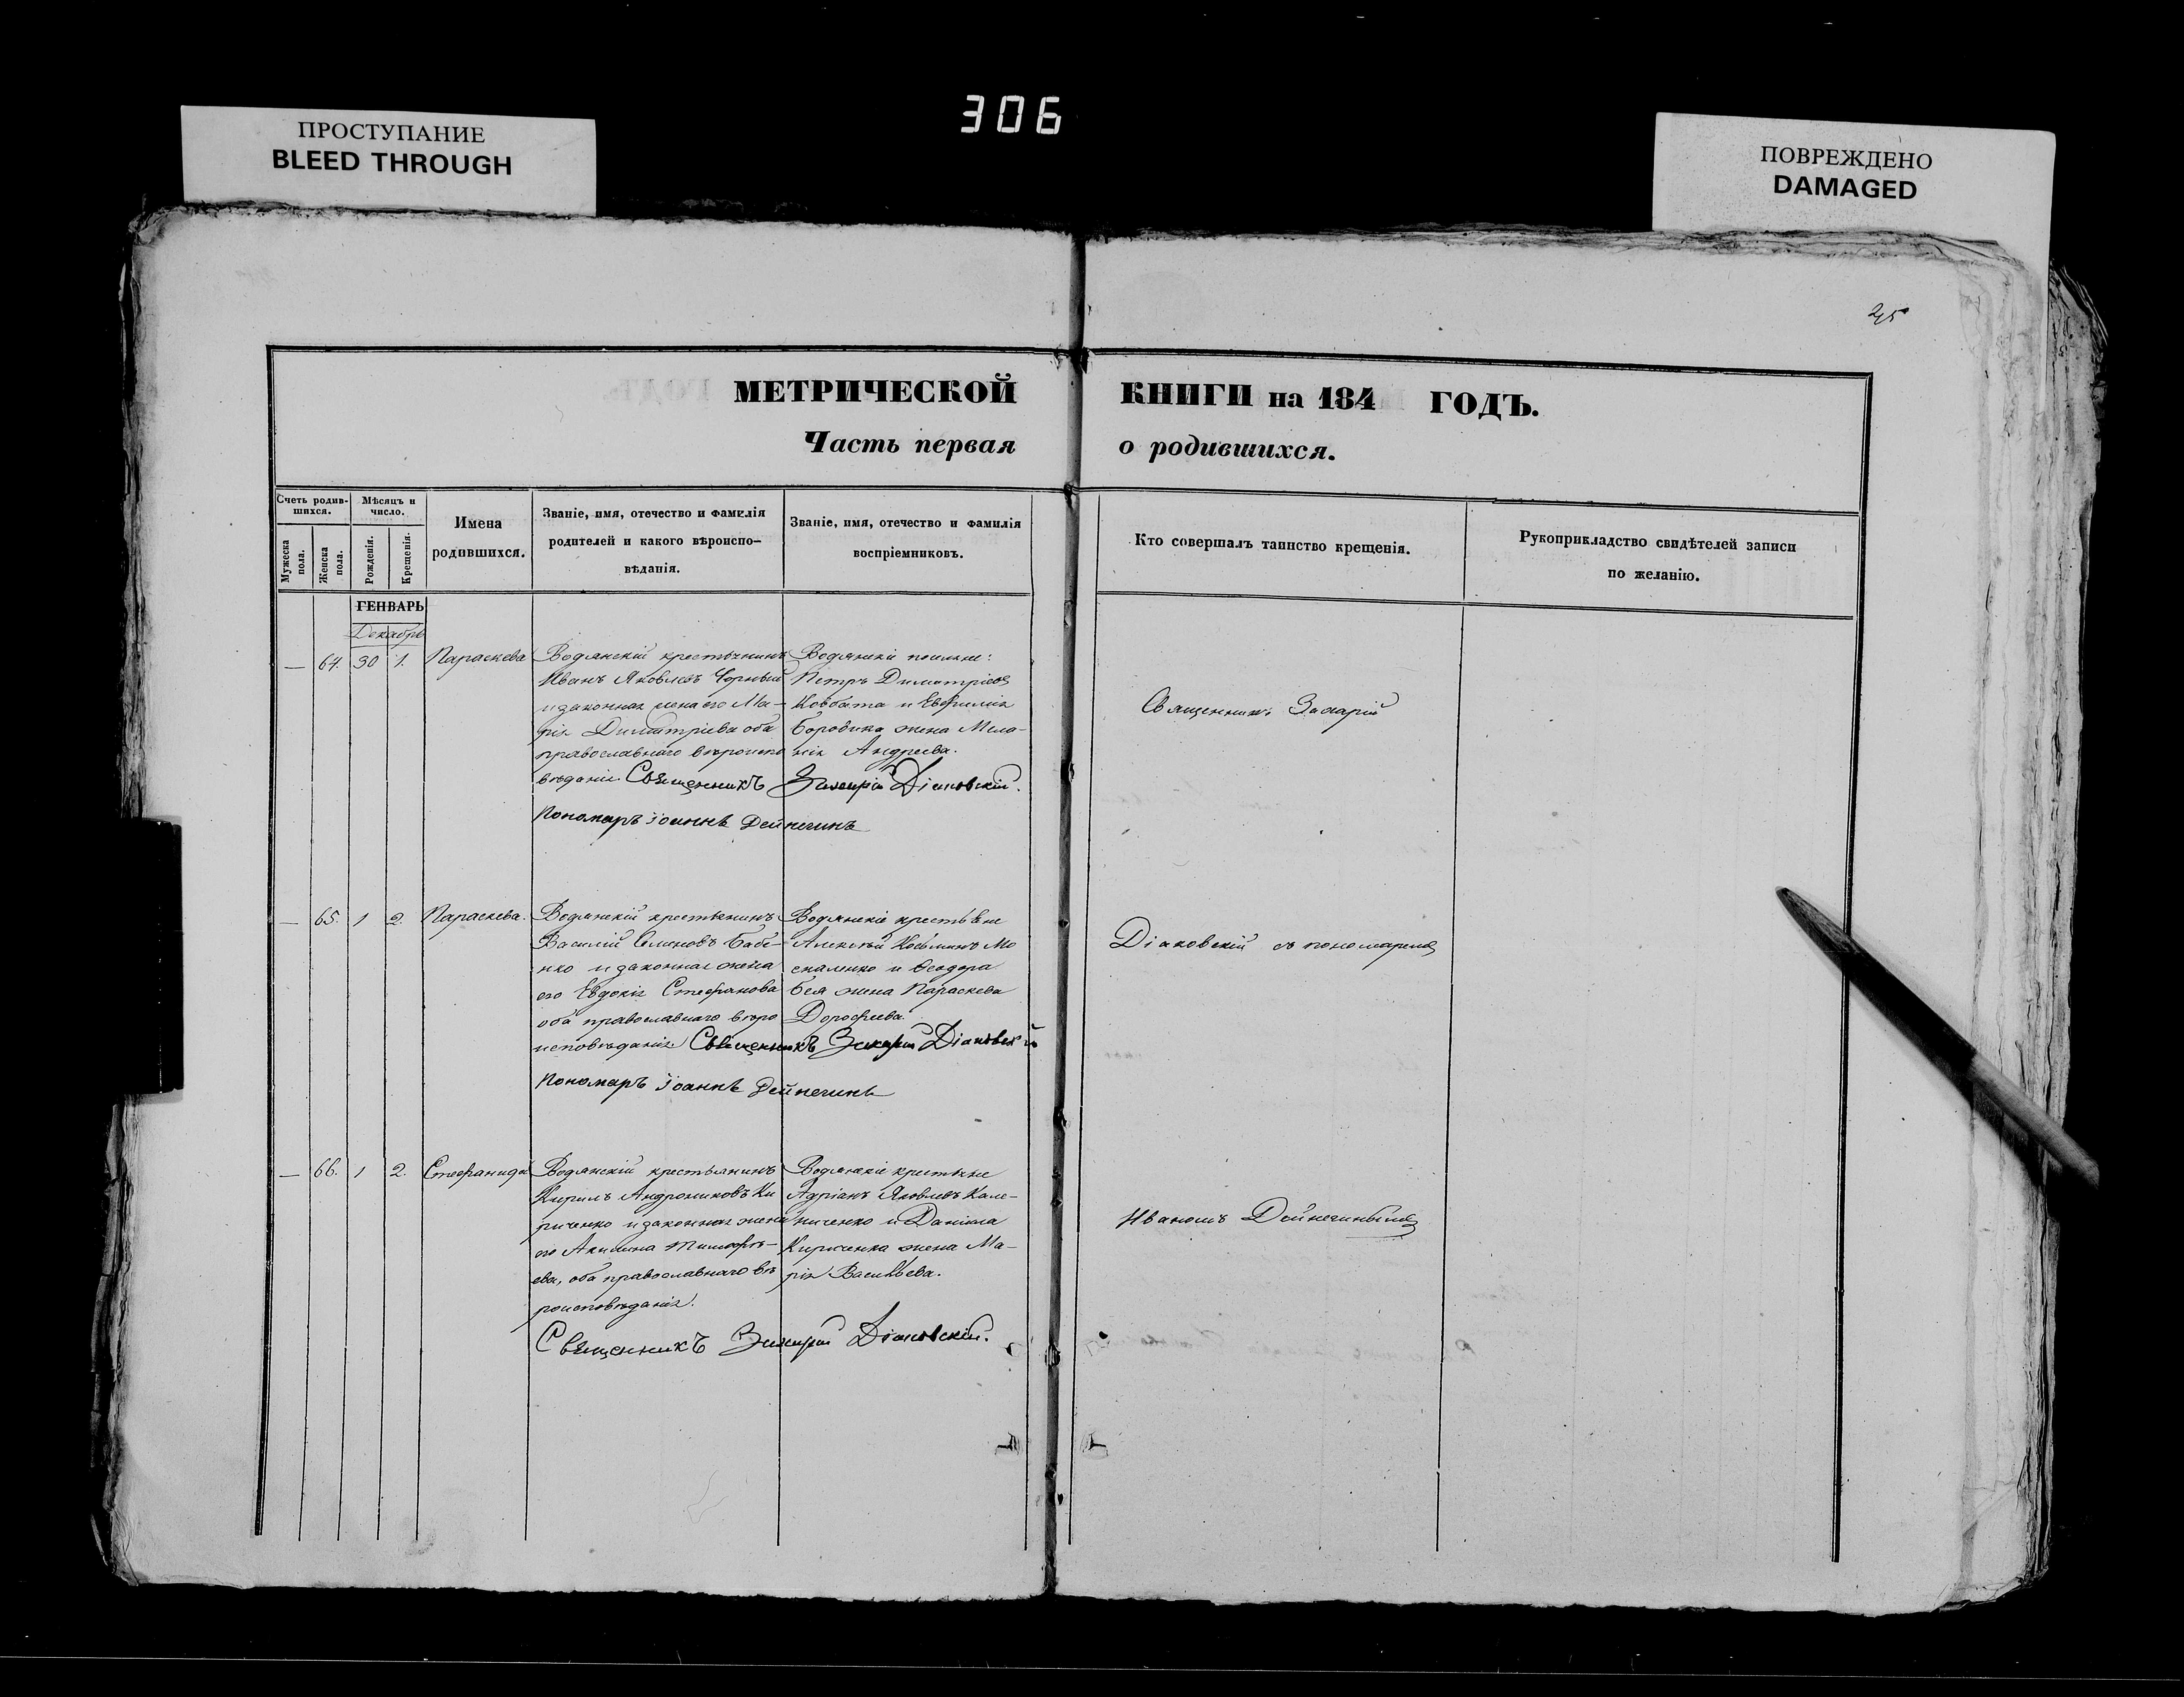 306
ПРОСТУПАНИЕ
BLEED THROUGH
ПОВРЕЖДЕНО
DAMAGED
25
МЕТРИЧЕСКОЙ КНИГИ на 184 ГОДЪ.
Часть первая о родившихся.
Счетъ родив-
шихся.
Мужеска пола.
Женска пола.
Мѣсяцъ и число.
Рожденія.
Крещенія.
Имена
родившихся.
Званіе, имя, отечество и фамилія
родителей и какого вѣроиспо-
вѣданія.
Званіе, имя, отечество и фамилія
воспріемниковъ.
Кто совершалъ таинство крещенія.
Рукоприкладство свидѣтелей записи
по желанію.
ГЕНВАРЬ
Декабрь
— 64. 30 1. Параскева
Водянскій крестьянинъ
Иванъ Яковлевъ Чорный
и законная жена его Ма-
рія Димитріева оба
православнаго вѣроиспо
вѣданія Священникъ Захарій Діаковскій.
Пономарь Іоаннъ Дейнегинъ
Водянскіе
Петръ Димитріевъ
Ковбаса и Евфимія
Боровика жена Мела-
нія Андреева.
Священникъ Захарій
— 65. 1 2. Параскева.
Водянскій крестьянинъ
Василій Семеновъ Бабе-
нко и законная жена
его Евдокія Стефанова
оба православнаго вѣро
исповѣданія Священникъ Захарій Діаковскій
Пономарь Іоаннъ Дейнегинъ
Водянскіе крестьяне
Алексѣй Козьминъ Мо
скаленко и Ѳеодора
Бея жена Параскева
Дорофеева.
Діаковскій съ пономаремъ
— 66. 1 2. Стефанида
Водянскій крестьянинъ
Кирилъ Андрониковъ Ки
риченко и законная жена
его Акилина Тимофѣ-
ева, оба православнаго вѣ
роисповѣданія.
Священникъ Захарій Діаковскій.
Водянскіе крестьяне
Адріанъ Яковлевъ Кале-
ниченко и Даніила
Кириченка жена Ма-
рія Васильева.
Иваномъ Дейнегинымъ